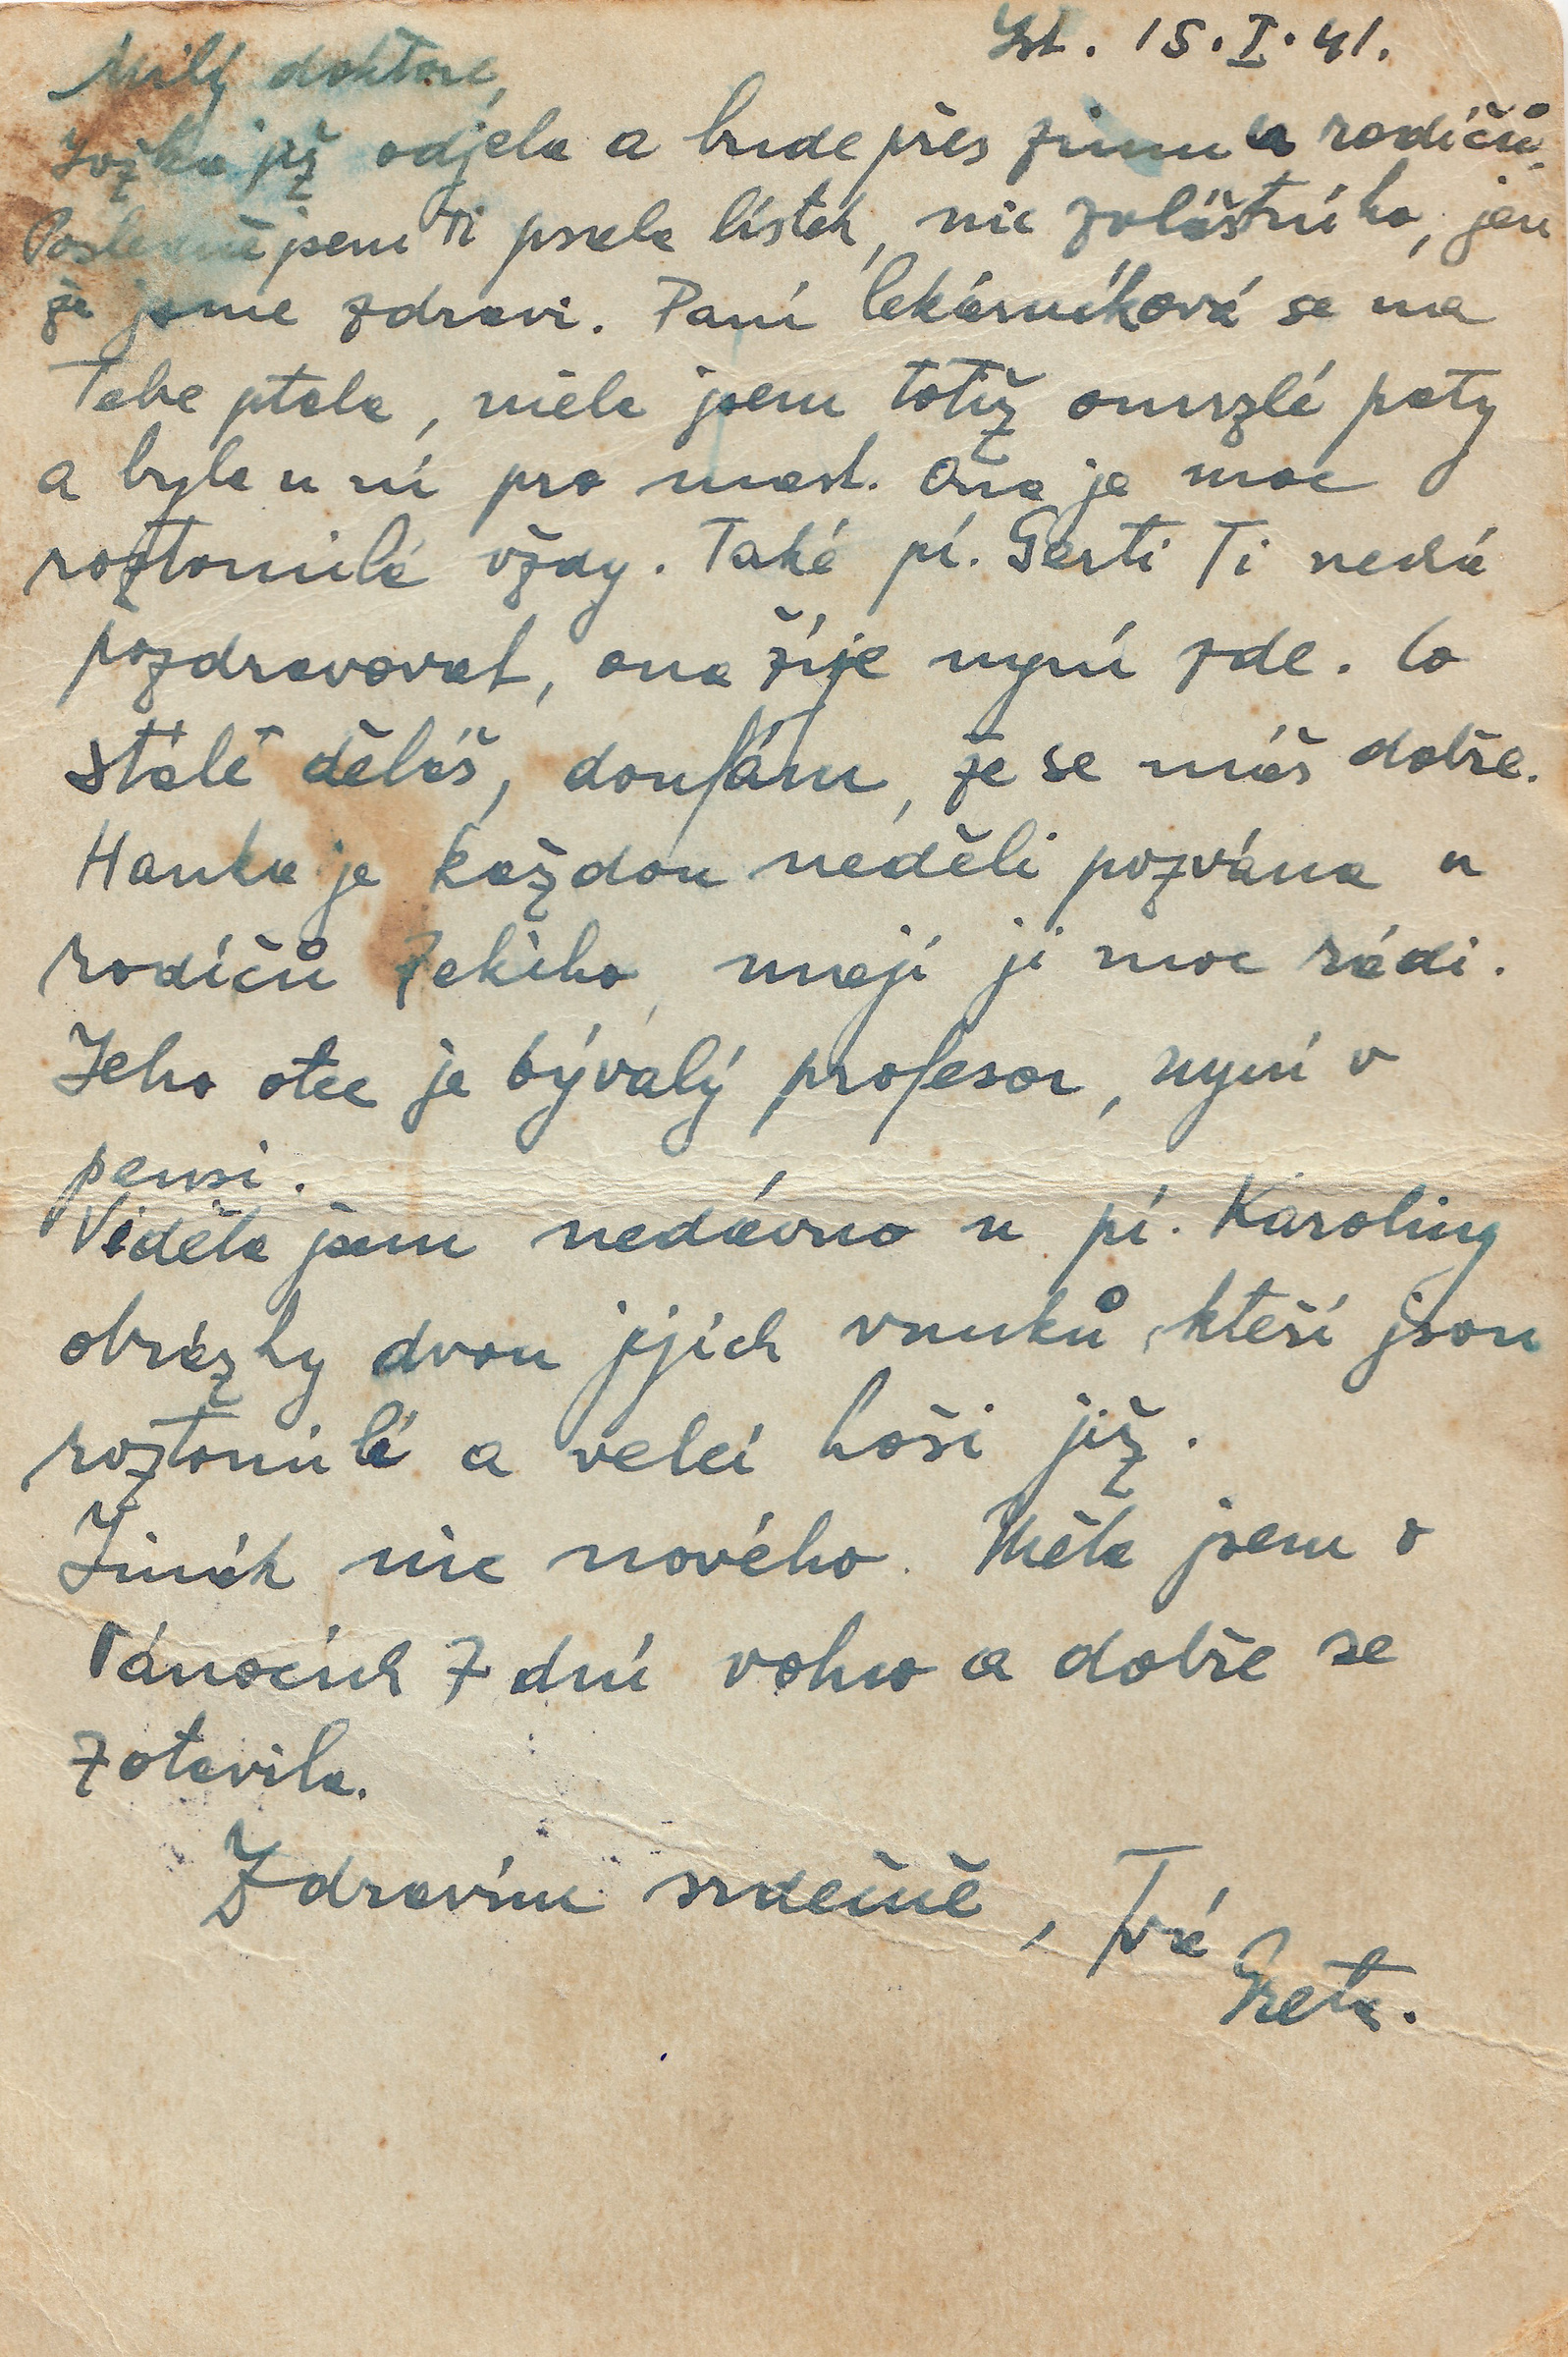 Ist. 15.I.41.
Milý doktore,
Jožka již odjela a bude přes zimu u rodičů.
Posledně jsem Ti psala lístek, nic zvláštního, jen
že jsme zdravi. Paní lekárníková se na
Tebe ptala, měla jsem totiž omrzlé paty
a byla u ní pro mast. Ona je moc
roztomilá vždy. Také pí. Gerti Ti nechá
pozdravovat, ona žije nyní zde. Co
stále děláš, doufám, že se máš dobře.
Hanka je každou neděli pozvána u
rodičů Zekiho, mají ji moc rádi.
Jeho otec je bývalý profesor, nyní v
pensi.
Viděla jsem nedávno u pí. Karoliny
obrázky dvou jejich vnuků, kteří jsou
roztomilé a velcí hoši již.
Jinak nic nového. Měla jsem o
Vánocích 7 dní volno a dobře se
zotavila.
Zdravím srdečně, Tvá
Greta.